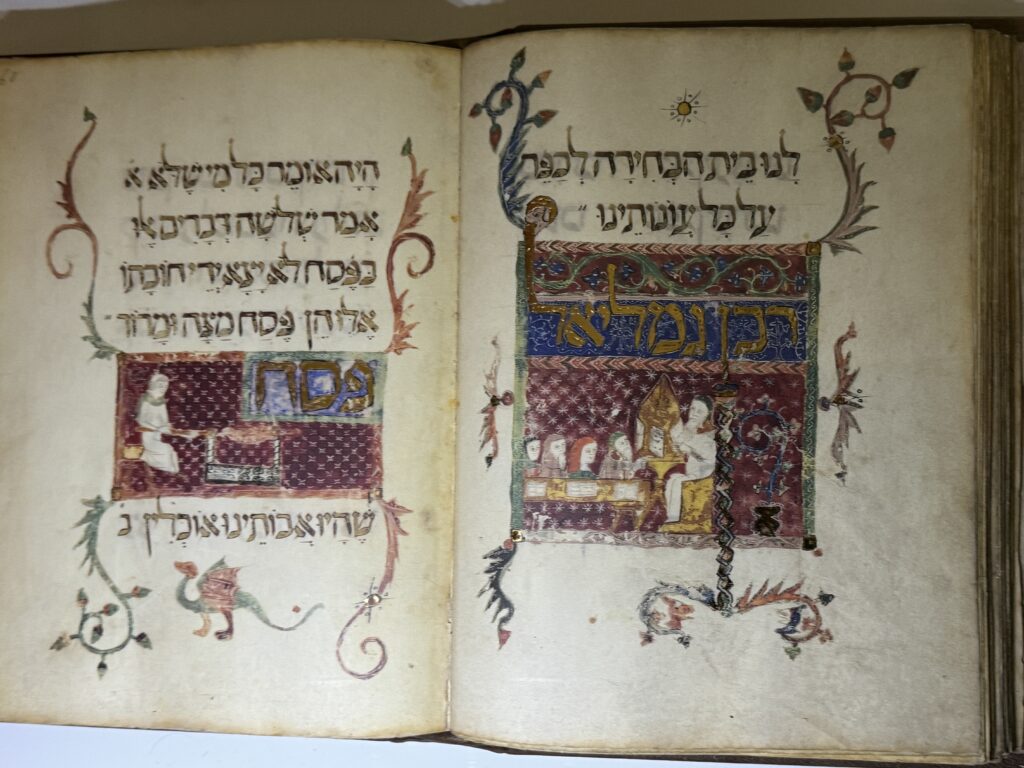 לנו בית הבחירה לכפר
על כל עונותינו
רבן גמליאל
היה אומר כל מי שלא א
אמר שלשה דברים אלו
בפסח לא יצא ידי חובתו
אלו הן פסח מצה ומרור
פסח
שהיו אבותינו אוכלין